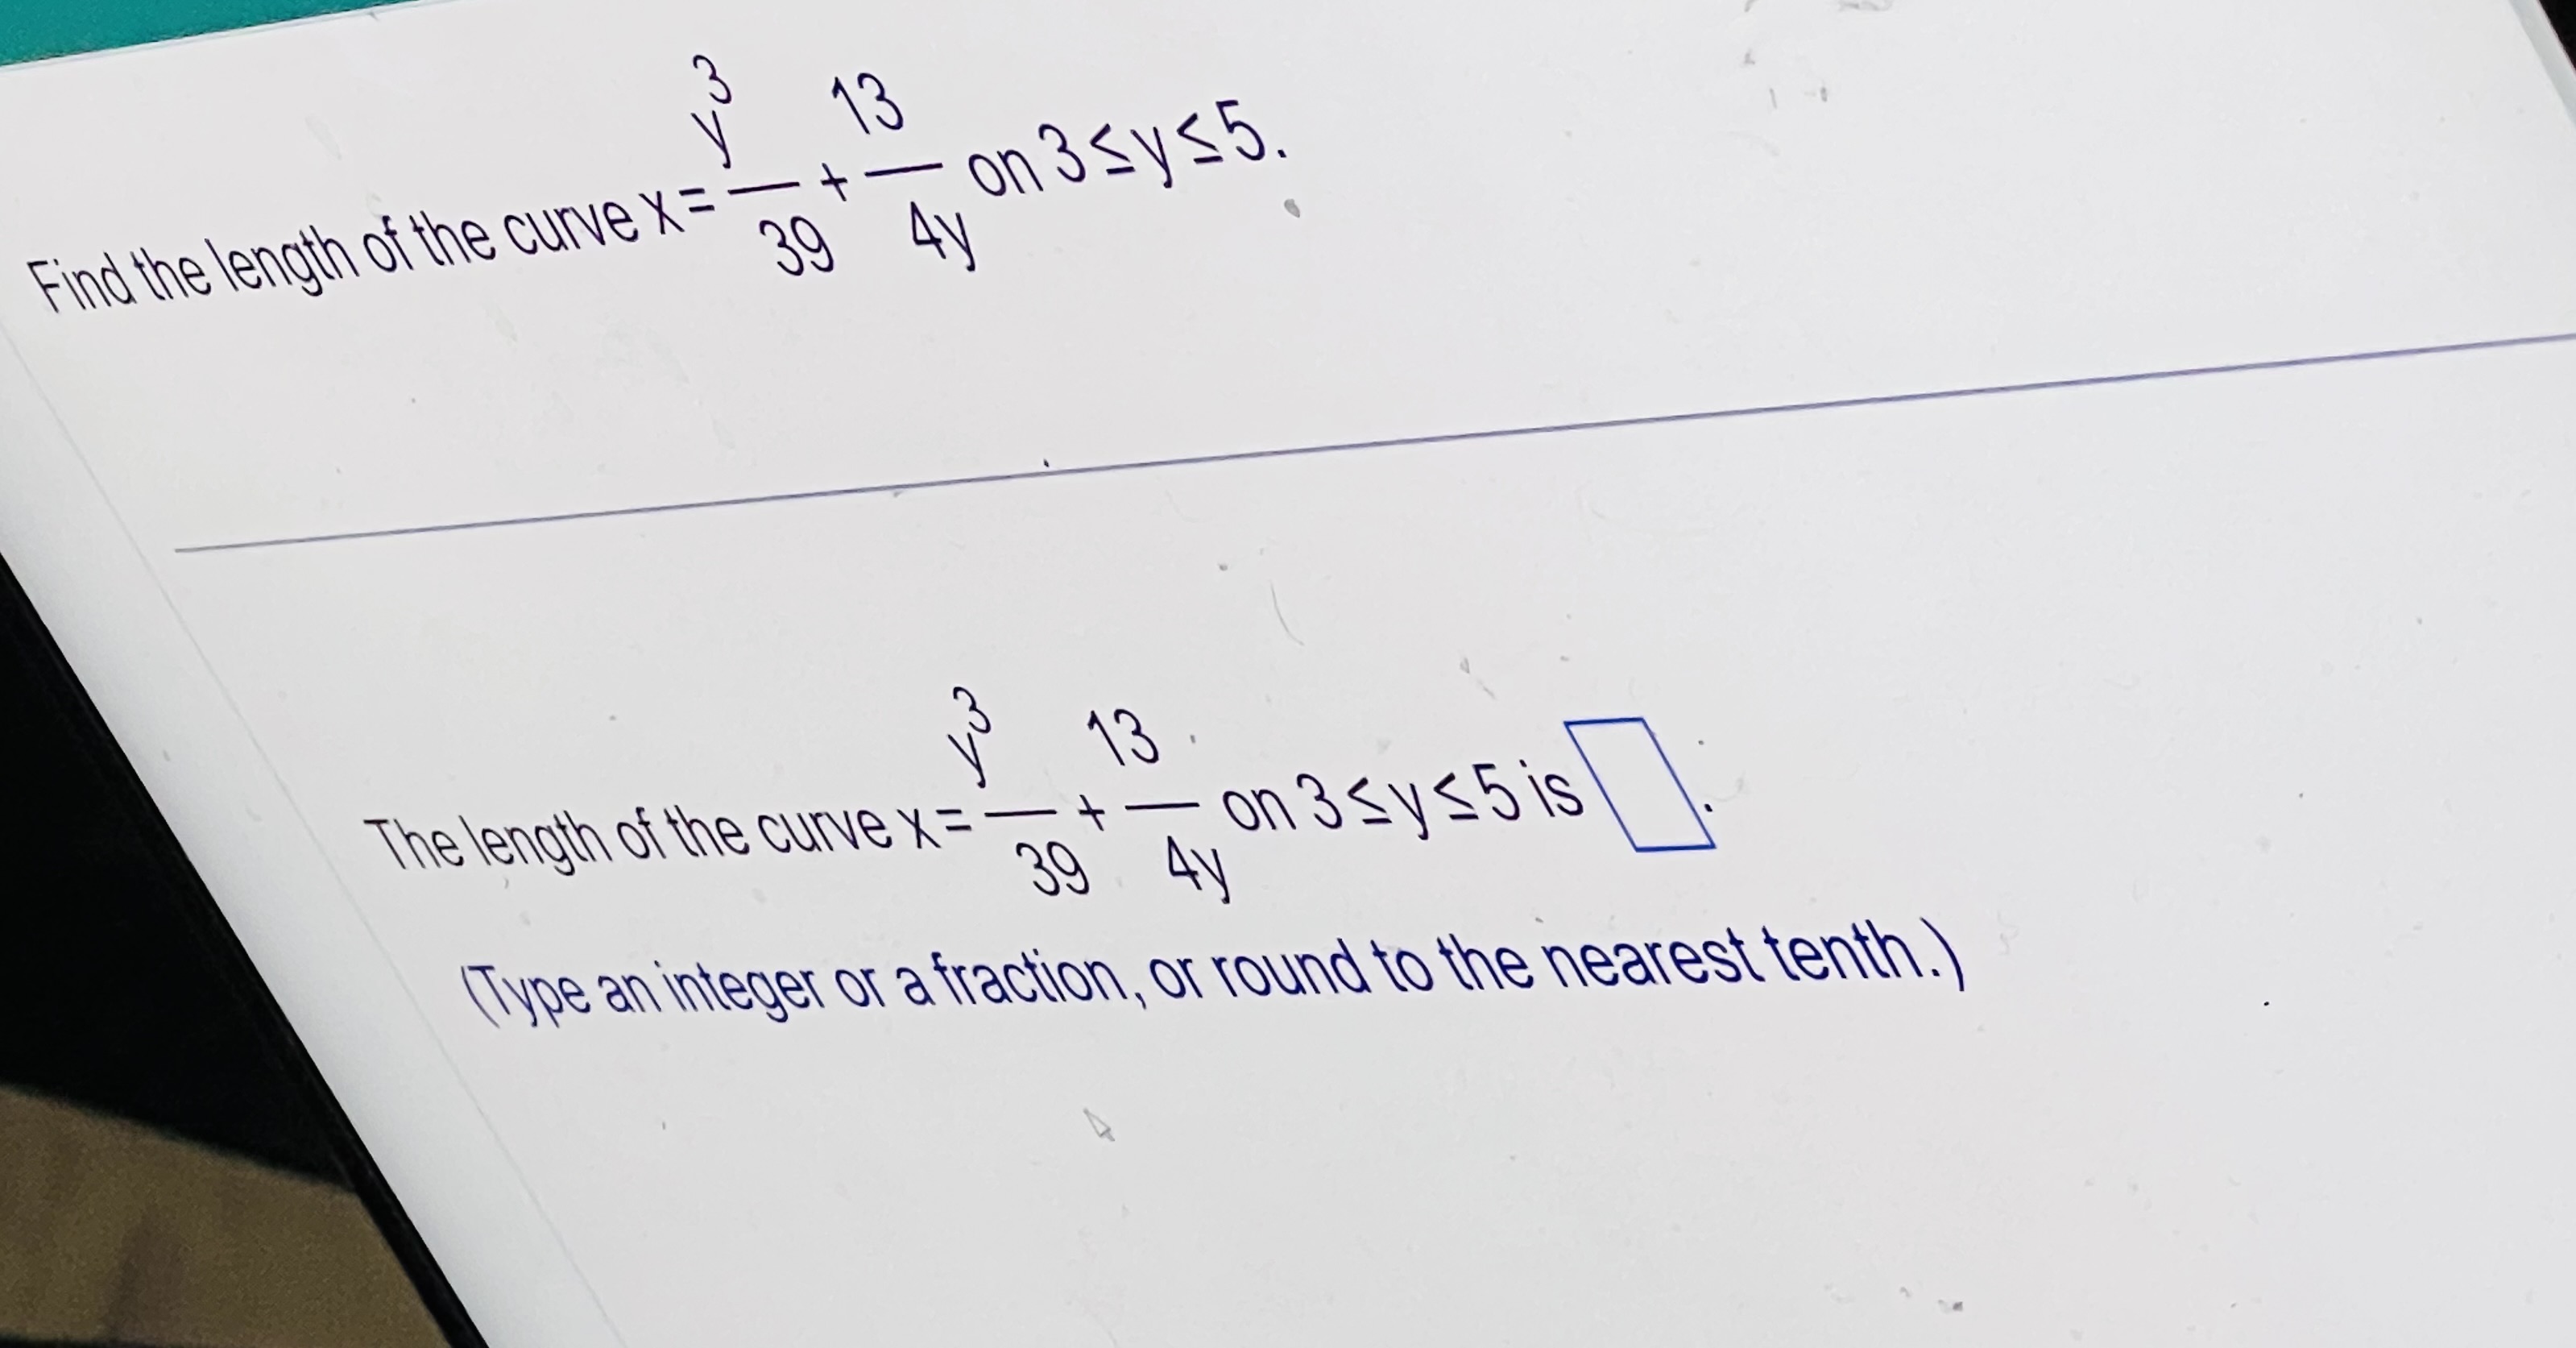 Find the length of the curve x = y³/39 + 13/4y on 3 ≤ y ≤ 5.
The length of the curve x = y³/39 + 13/4y on 3 ≤ y ≤ 5 is .
(Type an integer or a fraction, or round to the nearest tenth.)